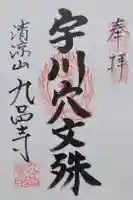 奉拝
宇川穴文殊
清涼山九品寺